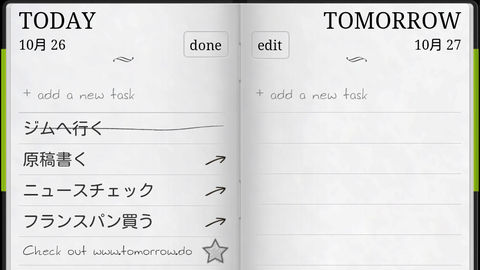 TODAY
10月 26
done
+ add a new task
ジムへ行く
原稿書く
ニュースチェック
フランスパン買う
Check out www.tomorrow.do
TOMORROW
edit
10月 27
+ add a new task